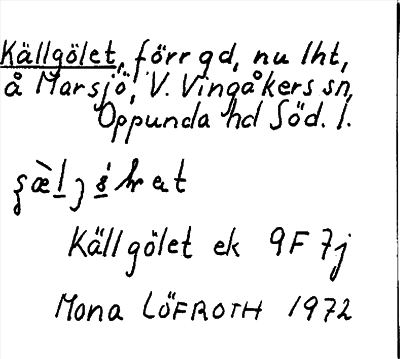 Källgölet, förr gd, nu lht,
å Marsjö, V. Vingåkers sn,
Oppunda hd Söd. l.
Källgölet ek 9F 7j
Mona LÖFROTH 1972